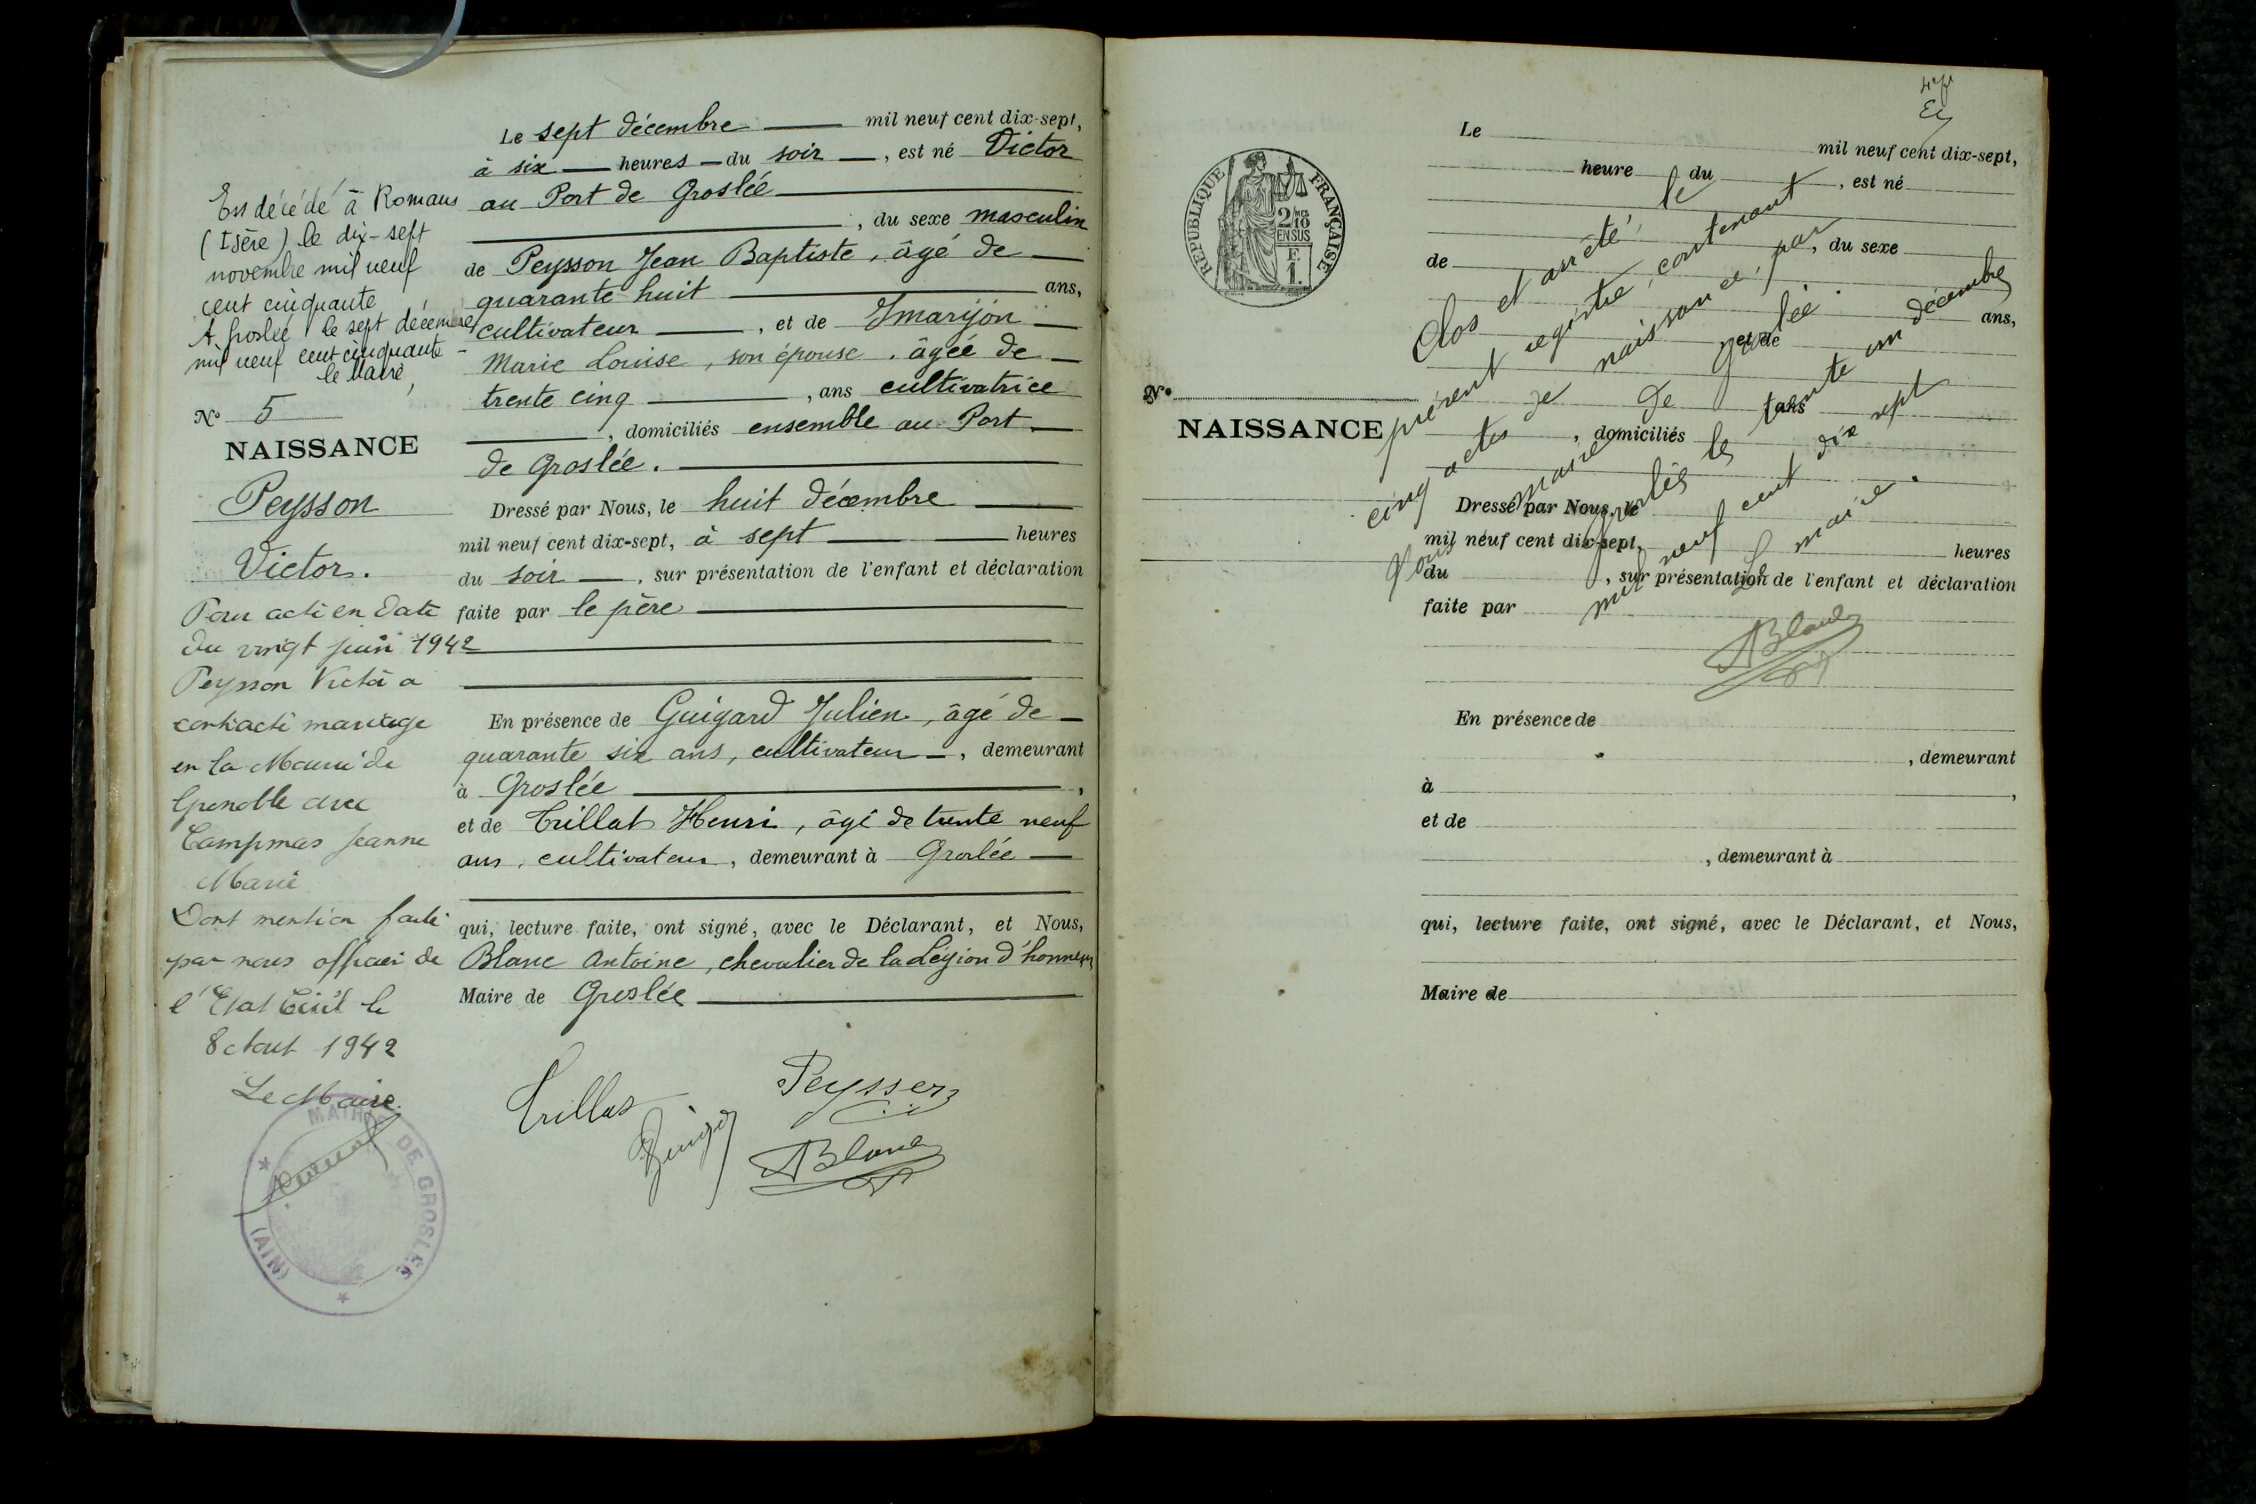 Le sept décembre mil neuf cent dix-sept,
à six heures du soir, est né Victor
au Port de Groslée
, du sexe masculin
de Peysson Jean Baptiste, âgé de
quarante huit ans,
cultivateur, et de Jmarijon
Marie Louise, son épouse, âgée de
trente cinq, ans cultivatrice
, domiciliés ensemble au Port
de Groslée.
Dressé par Nous, le huit décembre
mil neuf cent dix-sept, à sept heures
du soir, sur présentation de l'enfant et déclaration
faite par le père
En présence de Guigard Julien, âgé de
quarante six ans, cultivateur, demeurant
à Groslée,
et de Trillat Henri, âgé de trente neuf
ans, cultivateur, demeurant à Groslée
qui, lecture faite, ont signé, avec le Déclarant, et Nous,
Blanc Antoine, chevalier de la Légion d'honneur
Maire de Groslée
Trillat
Peysson
ABlanc
Est décédé à Romans
(Isère) le dix-sept
novembre mil neuf
cent cinquante
A Groslée le sept décembre
mil neuf cent cinquante
le Maire,
No 5
NAISSANCE
Peysson
Victor.
Par acte en date
du vingt juin 1942
Peysson Victor a
contracté mariage
en la Mairie de
Grenoble avec
Campmas Jeanne
Marie
Dont mention faite
par nous officier de
l'Etat Civil le
8 Aout 1942
Le Maire
MAIRIE DE GROSLÉE
(AIN)
REPUBLIQUE FRANÇAISE
2/10
EN SUS
E
1.
No
NAISSANCE
Le
mil neuf cent dix-sept,
heure du , est né
, du sexe
de
ans,
, et de
, ans
, domiciliés
Dressé par Nous, le
mil neuf cent dix-sept, heures
du , sur présentation de l'enfant et déclaration
faite par
En présence de
, demeurant
à ,
et de
, demeurant à
qui, lecture faite, ont signé, avec le Déclarant, et Nous,
Maire de
Clos et arrêté, le
présent registre, contenant
cinq actes de naissance, par
Nous maire de Groslée.
Groslée le trente un décembre
mil neuf cent dix sept
Le maire.
ABlanc